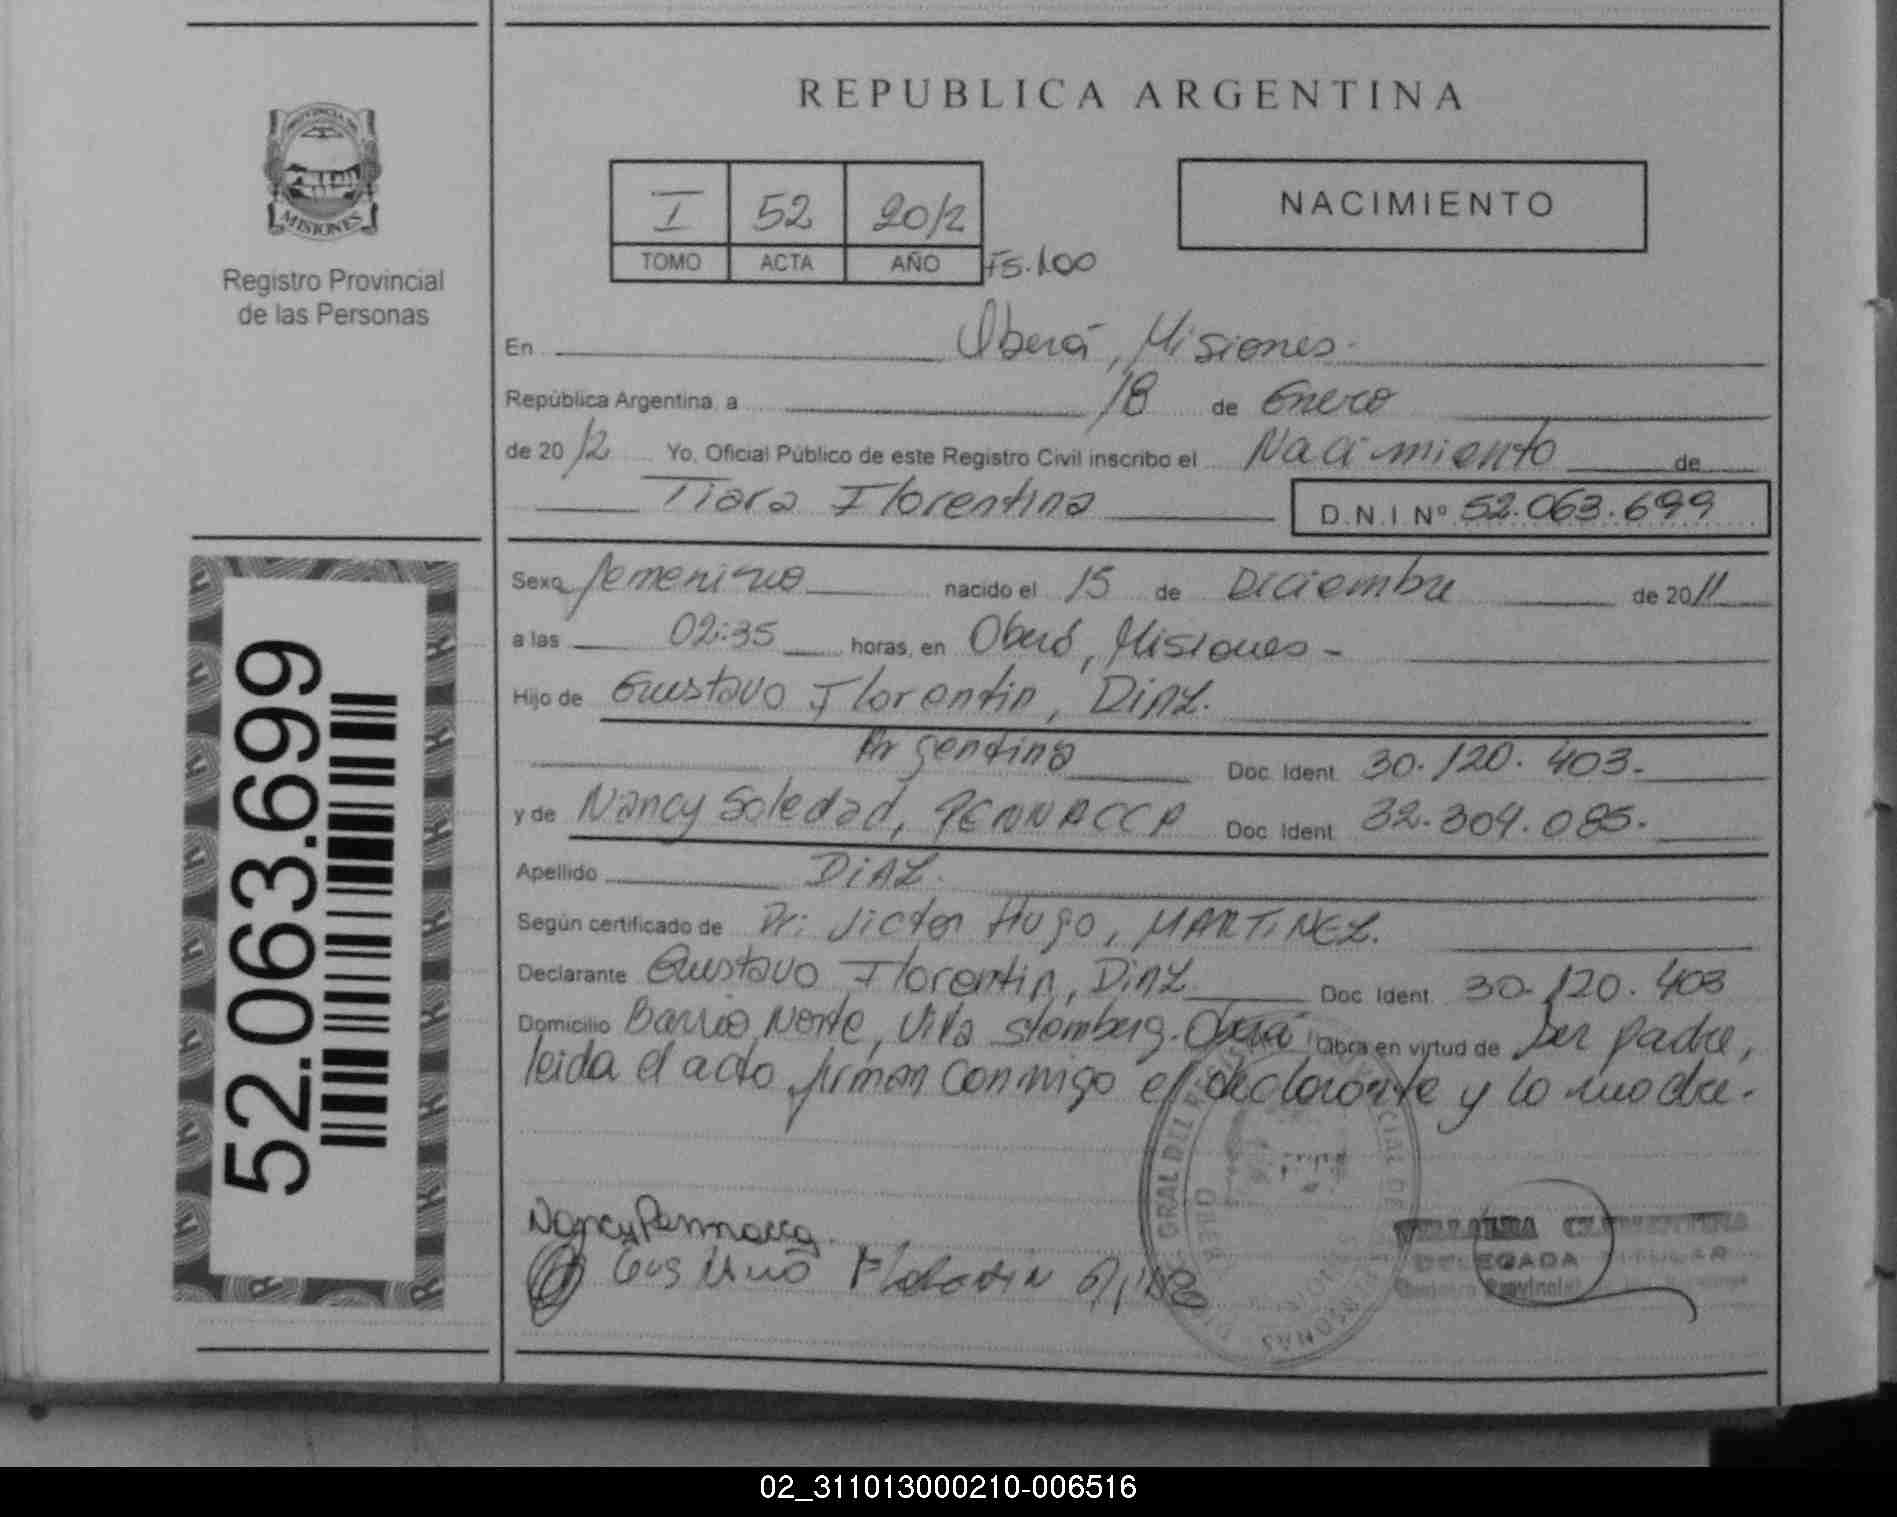 REPUBLICA ARGENTINA
PROVINCIA DE
MISIONES
Registro Provincial
de las Personas
I 52 2012
TOMO ACTA AÑO Fs.100
NACIMIENTO
En Oberá, Misiones.
República Argentina, a 18 de Enero
de 2012 Yo, Oficial Público de este Registro Civil inscribo el Nacimiento de
Tiara Florentina D.N.I Nº 52.063.699
52.063.699
Sexo femenino nacido el 15 de Diciembre de 2011
a las 02:35 horas, en Oberá, Misiones -
Hijo de Gustavo Florentin, DiAZ.
Argentina Doc. Ident. 30.120.403.
y de Nancy Soledad, PENNACCA Doc. Ident. 32.309.085.
Apellido DiAZ.
Según certificado de Dr: Victor Hugo, MARTiNEZ.
Declarante Gustavo Florentin, DiAZ Doc. Ident. 30.120.403
Domicilio Barrio Norte, Villa Stemberg. Oberá Obra en virtud de Ser padre,
leida el acto firman conmigo el declarante y la madre.
Nancy Pennacca
DELEGADA TITULAR
Registro Provincial
02_311013000210-006516